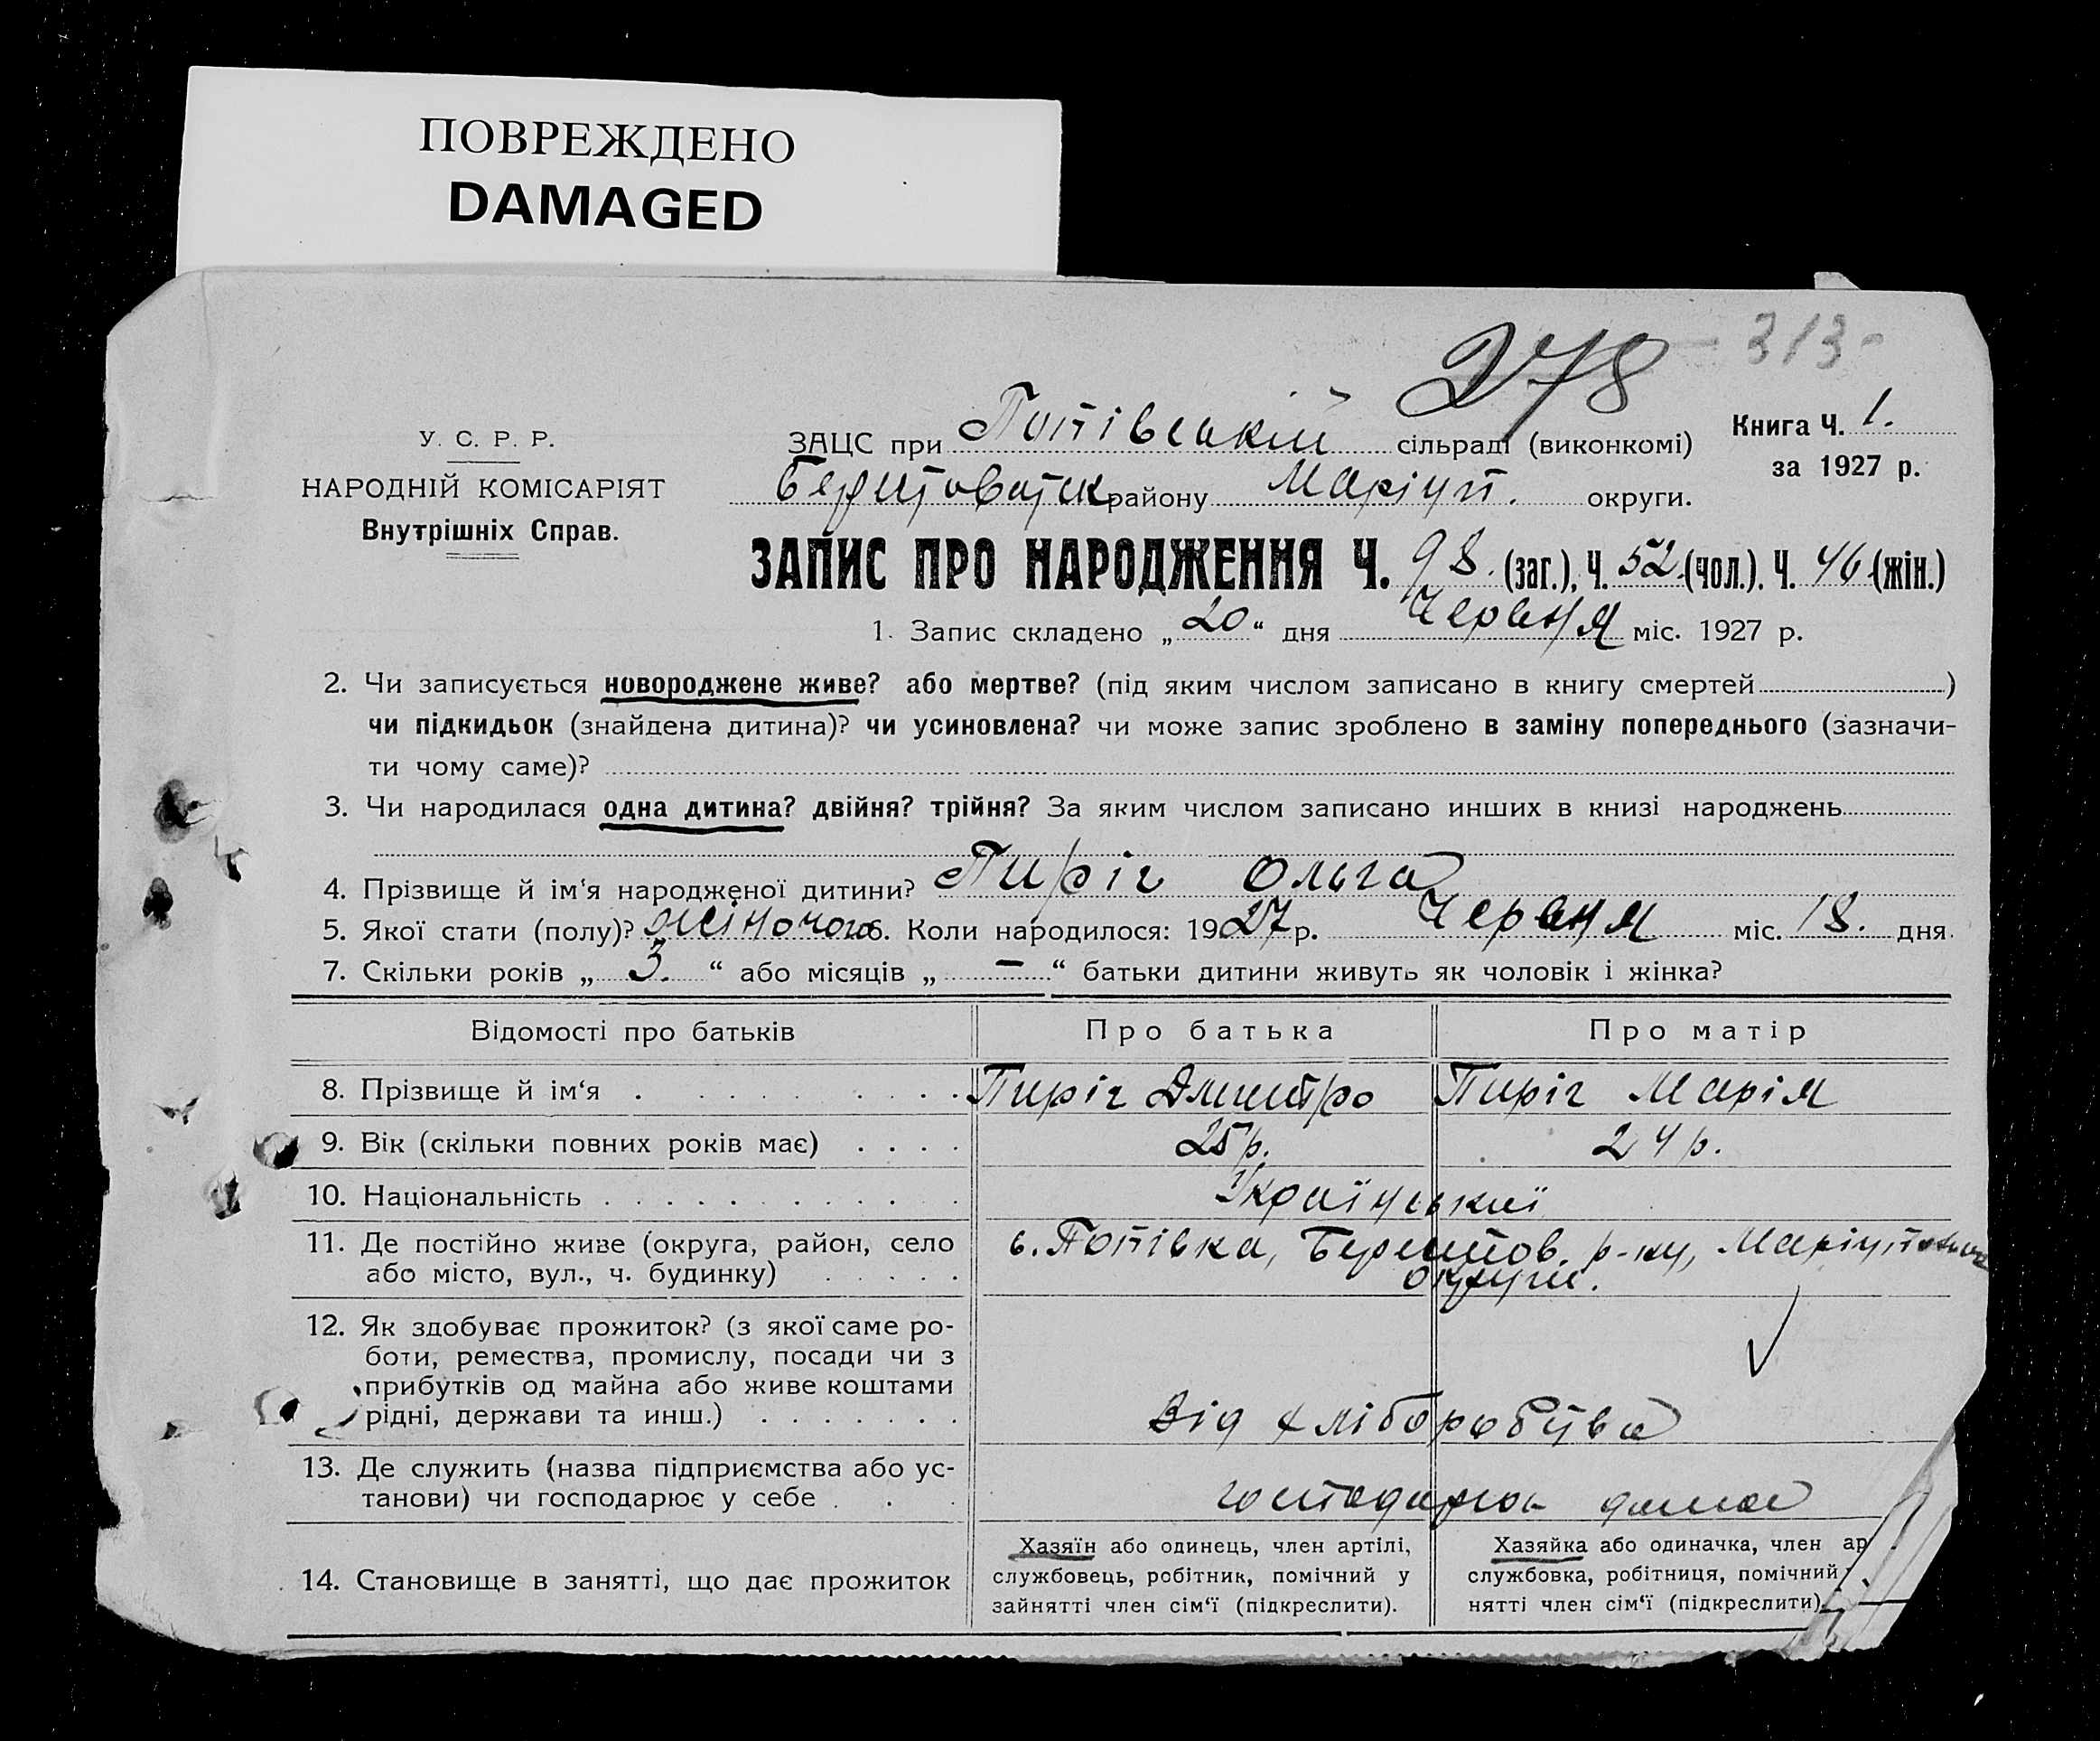 ПОВРЕЖДЕНО
DAMAGED
278 — 313 -
У. С. Р. Р.
НАРОДНІЙ КОМІСАРІЯТ
Внутрішніх Справ.
ЗАЦС при Попівській сільраді (виконкомі)
району Маріуп. округи.
Книга Ч. 1.
за 1927 р.
ЗАПИС ПРО НАРОДЖЕННЯ Ч. 98. (заг.), Ч. 52. (чол.). Ч. 46 (жін.)
1. Запис складено „ 20 “ дня Червня міс. 1927 р.
2. Чи записується новороджене живе? або мертве? (під яким числом записано в книгу смертей )
чи підкидьок (знайдена дитина)? чи усиновлена? чи може запис зроблено в заміну попереднього (зазначи-
ти чому саме)?
3. Чи народилася одна дитина? двійня? трійня? За яким числом записано инших в книзі народжень
4. Прізвище й ім‘я народженої дитини? Пиріг Ольга
5. Якої стати (полу)? жіночого 6. Коли народилося: 1927 р. Червня міс. 18. дня.
7. Скільки років „ 3. “ або місяців „ — “ батьки дитини живуть як чоловік і жінка?
Відомості про батьків Про батька Про матір
8. Прізвище й ім‘я Пиріг Дмитро Пиріг Марія
9. Вік (скільки повних років має) 25 р. 24 р.
10. Національність Український
11. Де постійно живе (округа, район, село с. Попівка, р-ну,
або місто, вул., ч. будинку) округи.
12. Як здобуває прожиток? (з якої саме ро-
боти, ремества, промислу, посади чи з
прибутків од майна або живе коштами
рідні, держави та инш.) Від хліборобства
13. Де служить (назва підприємства або ус-
танови) чи господарює у себе дома
14. Становище в занятті, що дає прожиток
Хазяїн або одинець, член артілі,
службовець, робітник, помічний у
зайнятті член сім‘ї (підкреслити).
Хазяйка або одиначка, член ар
службовка, робітниця, помічний
нятті член сім‘ї (підкреслити).